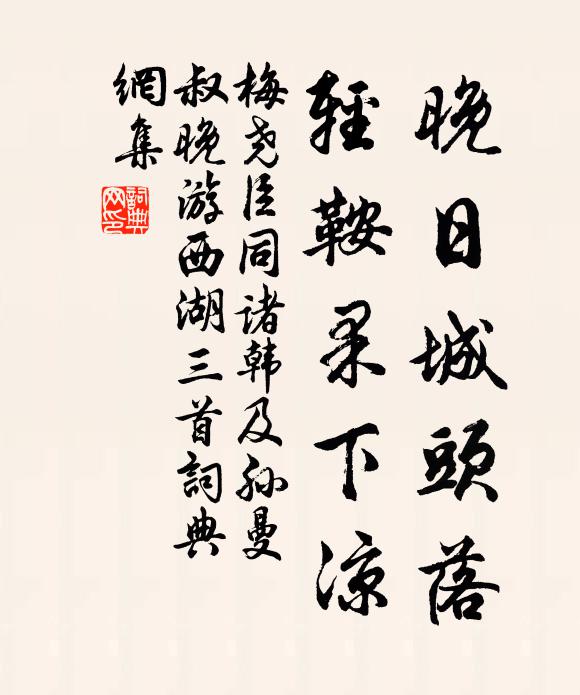 晚日城頭落
輕鞍果下涼
梅尧臣同诸韩及孙曼
叔晚游西湖三首詞典
網集
詞典
网印